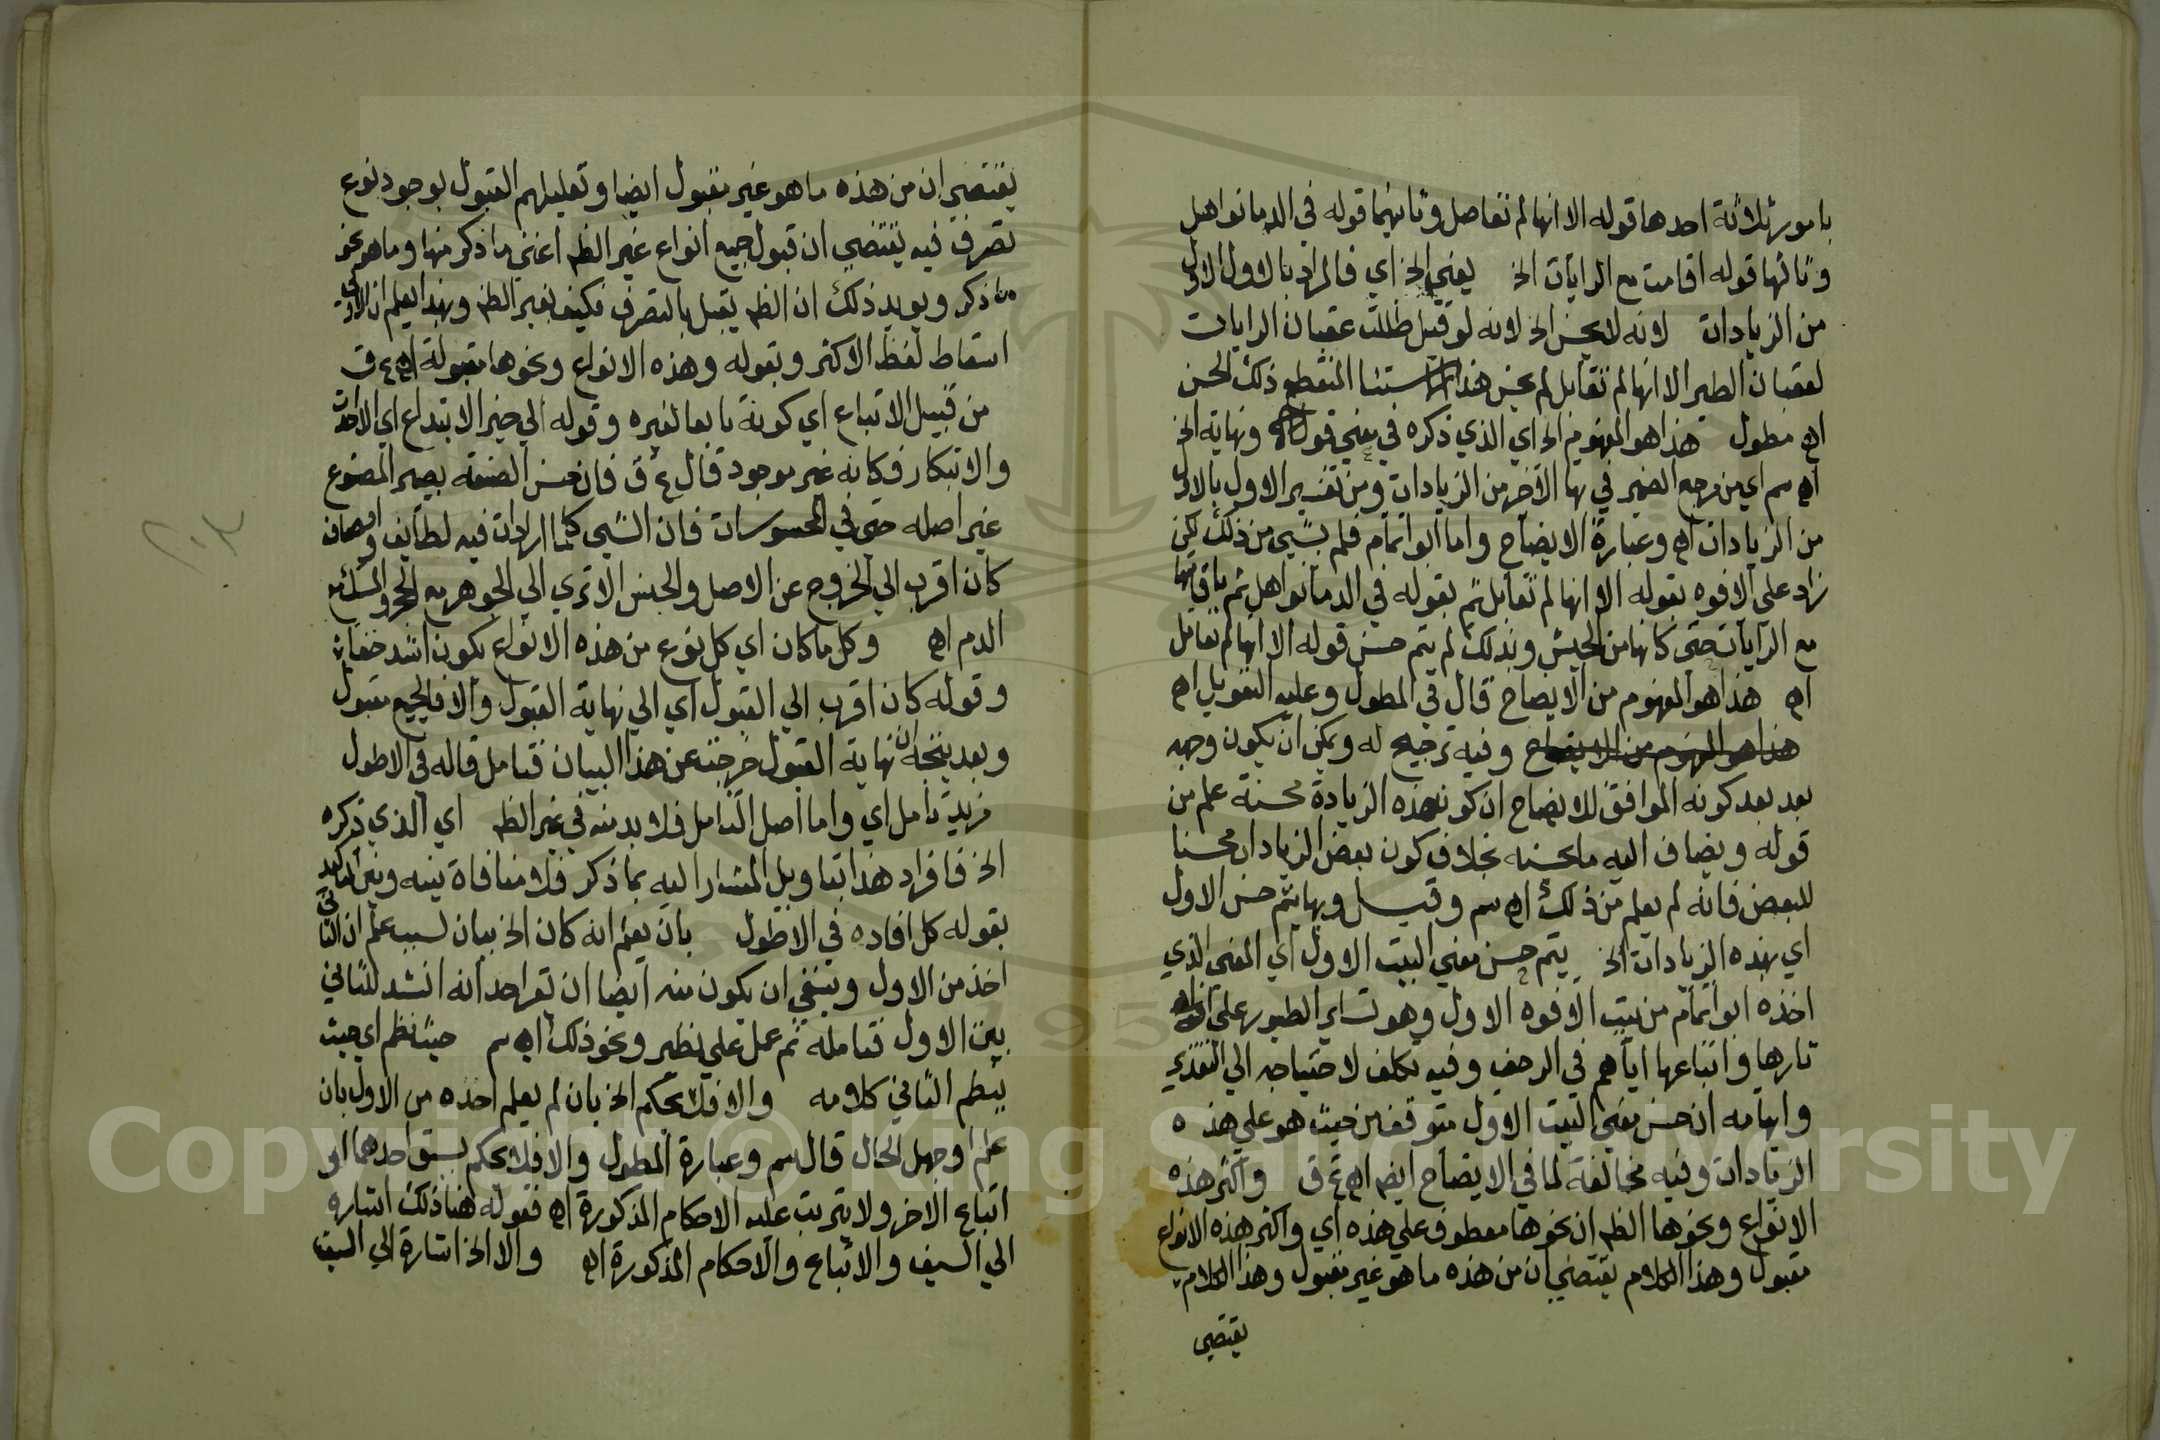 بامور ثلاثة احدها قوله الا انها لم تقاصل وثانيهما قوله في الدما نواهل
وثالثها قوله اقامت مع الرايات الخ يعني الخ اي فالمراد بالاول الاول
من الزيادات لانه لا يحسن الخ لانه لو قيل ظللت عقبان الرايات
لعقبان الطير الا انها لم تقابل لم يحسن هذا الاستثنا المنقطع ذلك الحسن
اه مطول هذا هو المفهوم الخ اي الذي ذكره في معني قوله ونهاية الخ
اه سم اي من مرجع الضمير في بها الاخر من الزيادات ومن تفسير الاول بالاول
من الزيادات اه وعبارة الايضاح واما ابو اتمام فلم بشيي من ذلك لكن
زاد علي الافوه بقوله الا انها لم تقابل ثم بقوله في الدما نواهل ثم باقامتها
مع الرايات حتي كانها من الجيش وبذلك لم يتم حسن قوله الا انها لم تقابل
اه هذا هو المفهوم من الايضاح قال في المطول وعليه التعويل اه
هذا هو المفهوم من الايضاح وفيه ترجيح له ويمكن ان يكون وجه
بعد بعد كونه الموافق للايضاح ان كون هذه الزيادة محسنة علم من
قوله ويضاف اليه ما يحسنه بخلاف كون بعض الزيادات محسنا
للبعض فانه لم يعلم من ذلك اه سم وقيل وبها يتم حسن الاول
اي بهذه الزيادات الخ يتم حسن معني البيت الاول اي المعنى الذي
اخذه ابو اتمام من بيت الافوه الاول وهو تساير الطيور علي
ثارها واتباعها اياهم في الزحف وفيه تكلف لاحتياجه الي التقدير
وايهامه ان حسن معني البيت الاول متوقف من حيث هو علي هذه
الزيادات وفيه مخالفة لما في الايضاح ايضا اه ع ق واكثر هذه
الانواع ونحوها الظ ان نحوها معطوف علي هذه اي واكثر هذه الانواع
مقبول وهذا الكلام يقتضي ان من هذه ما هو غير مقبول وهذا الكلام
يقتضي
يقتضي ان من هذه ما هو غير مقبول ايضا وتعليلهم القبول بوجود نوع
تصرف فيه يقتضي ان قبول جميع انواع غير الظ اعني ما ذكر منها وما هو نحو
ما ذكر ويويد ذلك ان الظ يقبل بالتصرف فكيف بغير الظ وبهذا يعلم ان الاولي
اسقاط لفظ الاكثر وبقوله وهذه الانواع ونحوها مقبولة اه ع ق
من قبيل الاتباع اي كونة تابعا لغيره وقوله الي حيز الابتداع اي الاحداث
والابتكار فكانه غير موجود قال ع ق فان حسن الصنعة يصير المصنوع
غير اصله حتي في المحسوسات فان الشيي كلما ازدادت فيه لطايف واوصاف
كان اقرب الي الخروج عن الاصل والجنس الا تري الي الجوهر مع الحجر والمسك مع
الدم اه وكل ما كان اي كل نوع من هذه الانواع يكون اشد خفا
وقوله كان اقرب الي القبول اي الي نهاية القبول والا فالجميع مقبول
وبعد يتجه ان نهاية القبول خرجت عن هذا البيان فتامل قاله في الاطول
مزيد تامل اي واما اصل التامل فلا بد منه في غير الظ اي الذي ذكره
الخ فافراد هذا بتاويل المشار اليه بما ذكر فلا منافاة بينه وبين تاكيد
بقوله كل افاده في الاطول بان يعلم انه كان الخ بيان لسبب علم ان الثاني
اخذ من الاول وينبغي ان يكون منه ايضا ان تقر احد انه انشد للثاني
بيت الاول فتامله ثم عمل علي نظير ونحو ذلك اه سم حيث نظم اي حيث
ينظم الثاني كلامه والا فلا يحكم الخ بان لم يعلم اخذه من الاول بان
علم او جهل الحال قال سم وعبارة المطول والا فلا يحكم بسبق احدهما او
اتباع الاخر ولا يترتب عليه الاحكام المذكورة اه فقوله هنا ذلك اشارة
الي السبق والاتباع والاحكام المذكورة اه والا الخ اشارة الي السبق